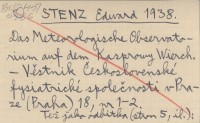 STENZ Edward 1938.
Das Meteorologische Observato-
rium auf dem Kasprowy Wierch.
– Věstník Československé
fysiatrické společnosti v Pra-
ze (Praha) 18, nr 1-2.
Też jako odbitka (stron 5, il.):